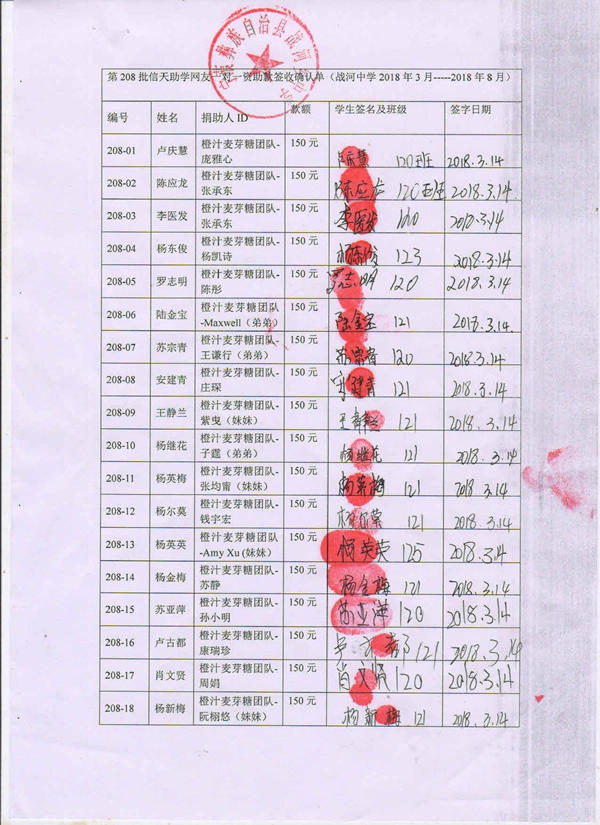 彝族自治县战河
第208批信天助学网友一对一资助款签收确认单（战河中学2018年3月-----2018年8月）
编号 姓名 捐助人ID 款额 学生签名及班级 签字日期
208-01 卢庆慧 橙汁麦芽糖团队- 150元 卢庆慧 120班 2018.3.14
庞雅心
208-02 陈应龙 橙汁麦芽糖团队- 150元 陈应龙 120班 2018.3.14
张承东
208-03 李医发 橙汁麦芽糖团队- 150元 李医发 2018.3.14
张承东
208-04 杨东俊 橙汁麦芽糖团队- 150元 123 2018.3.14
杨凯诗
208-05 罗志明 橙汁麦芽糖团队- 150元 罗志明 120 2018.3.14
陈彤
208-06 陆金宝 橙汁麦芽糖团队 150元 陆金宝 121 2018.3.14.
-Maxwell（弟弟）
208-07 苏宗青 橙汁麦芽糖团队- 150元 苏宗青 120 2018.3.14
王谦行（弟弟）
208-08 安建青 橙汁麦芽糖团队- 150元 安建青 121 2018.3.14
庄琛
208-09 王静兰 橙汁麦芽糖团队- 150元 王静兰 121 2018.3.14
紫曳（妹妹）
208-10 杨继花 橙汁麦芽糖团队- 150元 杨继花 121 2018.3.14
子霆（弟弟）
208-11 杨英梅 橙汁麦芽糖团队- 150元 杨英梅 121 2018.3.14
张均甯（妹妹）
208-12 杨尔莫 橙汁麦芽糖团队- 150元 121 2018.3.14
钱宇宏
208-13 杨英英 橙汁麦芽糖团队 150元 杨英英 125 2018.3.14
-Amy Xu（妹妹）
208-14 杨金梅 橙汁麦芽糖团队- 150元 杨金梅 121 2018.3.14
苏静
208-15 苏亚萍 橙汁麦芽糖团队- 150元 苏亚萍 120 2018.3.14
孙小明
208-16 卢古都 橙汁麦芽糖团队- 150元 卢古都 121 2018.3.14
康瑞珍
208-17 肖文贤 橙汁麦芽糖团队- 150元 肖文贤 120 2018.3.14
周娟
208-18 杨新梅 橙汁麦芽糖团队- 150元 杨新梅 121 2018.3.14
阮栩悠（妹妹）